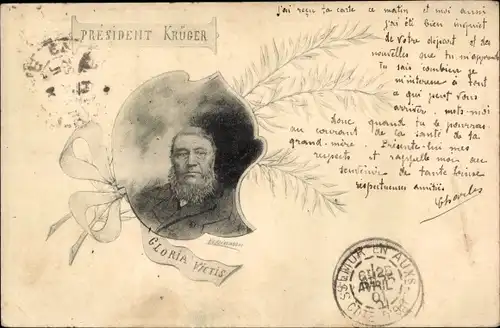 PRÉSIDENT KRÜGER
J'ai reçu ta carte ce matin et moi aussi
j'ai été bien inquiet
de votre départ et des
nouvelles que tu m'
Tu sais combien je
m'intéresse à tout
ce qui peut vous
arriver. mets-moi
donc quand tu le pourras
au courant de la santé de ta
grand-mère Présente-lui mes
respects et rappelle moi au
souvenir de tante Louise
respectueuses amitiés
Charles
GLORIA VICTIS
SEMUR-EN-AUXOIS
AVRIL
01
CÔTE D'OR